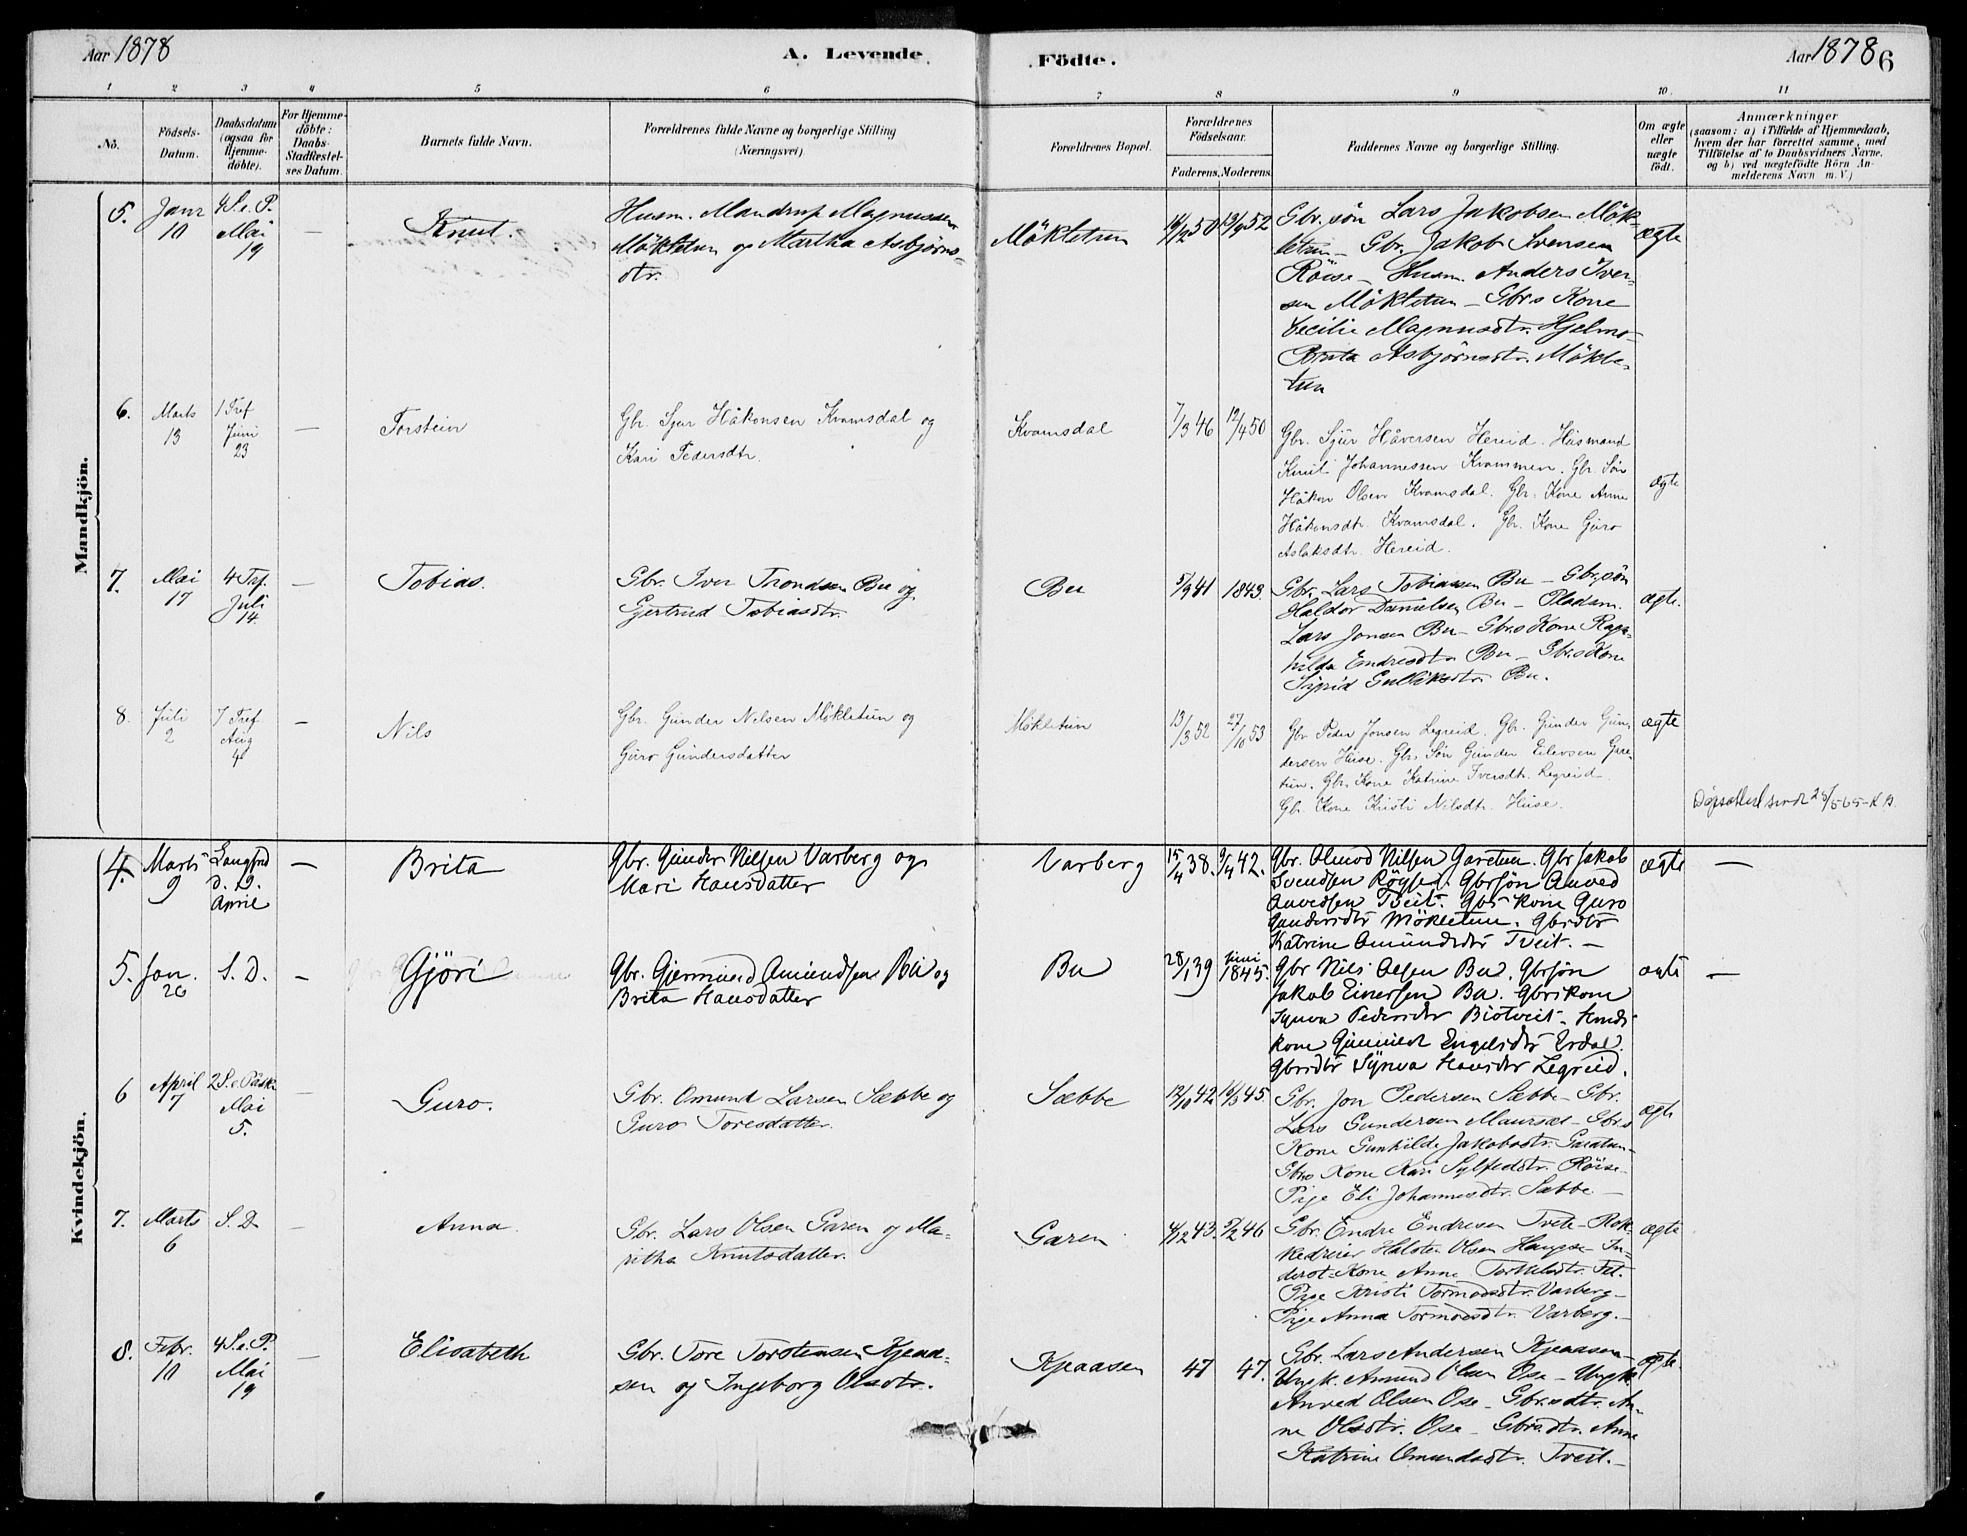 Aar 1878
A. Levende
Födte.
Aar 1878
6
1 2 3 4 5 6 7 8 9 10 11
No.
Födsels-
Datum.
Daabsdatum
(ogsaa for
Hjemme-
döbte).
For Hjemme-
döbte:
Daabs-
Stadfæstel-
ses Datum.
Barnets fulde Navn.
Forældrenes fulde Navne og borgerlige Stilling
(Næringsvei).
Forældrenes Bopæl.
Forældrenes
Födselsaar.
Faderens. Moderens.
Faddernes Navne og borgerlige Stilling.
Om ægte
eller
uægte
födt.
Anmærkninger
(saasom: a) i Tilfælde af Hjemmedaab,
hvem der har forrettet samme, med
Tilföielse af to Daabsvidners Navne,
og b) ved uægtefödte Börn An-
melderens Navn m. V.)
Mandkjön.
5.
Janr
10
4 S. e. P.
Mai
19
—
Knut.
Husm. Mandrup Magnussen
Mökletun og Martha Asbjörns-
dtr.
Mökletun
16/2 50
13/9 52
Gbr. sön Lars Jakobsen Mök-
letun — Gbr. Jakob Svensen
Röise — Husm. Anders Iver-
sen Mökletun — Gbr.s Kone
Cecilie Magnusdtr. Hjelmo —
Brita Asbjörnsdtr. Mökle-
tun
ægte
6.
Marts
13
1 Tref
Juni
23
—
Torstein
Gbr. Sjur Håkonsen Kvamsdal og
Kari Pedersdtr.
Kvamsdal
7/3 46
12/4 50
Gbr. Sjur Håversen Hereid. Husmand
Knut Johannessen Kvammen. Gbr. Sön
Håkon Olsen Kvamsdal. Gbr. Kone Anne
Håkonsdtr. Kvamsdal. Gbr. Kone Guro
Aslaksdtr. Hereid.
ægte
7.
Mai
17
4 Trf.
Juli
14.
—
Tobias.
Gbr. Iver Trondsen Bu og
Gjertrud Tobiasdtr.
Bu
5/9 41
1843.
Gbr. Lars Tobiassen Bu — Gbr. sön
Haldor Danielsen Bu — Pladsm.
Lars Jonsen Bu — Gbr.s Kone Ragn-
hilda Endresdtr Bu — Gbr.s Kone
Sigrid Gulliksdtr. Bu.
ægte.
8.
Juli
2
7 Tref.
Aug
4
—
Nils
Gbr. Gunder Nilsen Mökletun og
Guro Gundersdatter
Mökletun
13/3 52
27/10 53
Gbr. Peder Jonsen Legreid. Gbr. Gunder Gun-
dersen Huse. Gbr. Sön Gunder Eilevsen Gare-
tun. Gbr. Kone Katrine Iversdtr. Legreid.
Gbr. Kone Kristi Nilsdtr. Huse.
ægte
Kvindekjön.
4.
Marts
9
Langfred
d. 19.
April
—
Brita
Gbr. Gunder Nilsen Varberg og
Mari Hansdatter
Varberg
15/4 38.
9/4 42.
Gbr. Olmod Nilsen Garetun. Gbr. Jakob
Svendsen Röysse. Gbrsön Anved
Anvedsen Tveit. Gbr kone Guro
Gundersdtr Mökletun. Gbrdtr
Katrine Amundsdtr Tveit. —
ægte
—
5.
Jan.
26
S. D.
—
Gjöri
Gbr. Gjermund Amundsen Bu og
Brita Hansdatter
Bu
28/1 39
Juni
1845.
Gbr Nils Olsen Bu. Gbrsön
Jakob Einersen Bu. Gbrskone
Synva Pedersdtr Biotveit. Hmds
kone Gunnild Engelsdtr Erdal.
Gbrsdtr Synva Hansdtr Legreid.
ægte
—
6
April
7
2 S. e. Påske
Mai
5.
—
Guro.
Gbr. Omund Larsen Sæbbe og
Guro Toresdatter.
Sæbbe
12/10 42
16/3 45.
Gbr. Jon Pedersen Sæbbe — Gbr.
Lars Gundersen Maursæt — Gbr.s
Kone Gunhilde Jakobsdtr. Garatun —
Gbr.s Kone Kari Sylfestdtr. Röise —
Pige Eli Johannesdtr. Sæbbe —
ægte
7.
Marts
6
S. D.
—
Anna
Gbr. Lars Olsen Garen og Ma-
ritha Knutsdatter.
Garen
4/12 43.
5/2 46
Gbr. Endre Endresen Tveit — Rok-
kedreier Halsten Olsen Haugse — In-
derst-Kone Anne Torkilsdtr. Fet.
Pige Kristi Tormodsdtr. Varberg —
Pige Anna Tormodsdtr. Varberg. —
ægte
8.
Febr.
10
4 S. e. P.
Mai
19
—
Elisabeth
Gbr. Tore Torstensen Kjeaa-
sen og Ingeborg Olsdtr.
Kjeaasen
47
47.
Gbr. Lars Andersen Kjeaasen —
Ungk. Amund Olsen Ose — Ungk.
Anved Olsen Ose — Gbr.sdtr. An-
ne Olsdtr. Ose — Gbr.sdtr. Anne
Katrine Omundsdtr. Tveit. —
ægte.